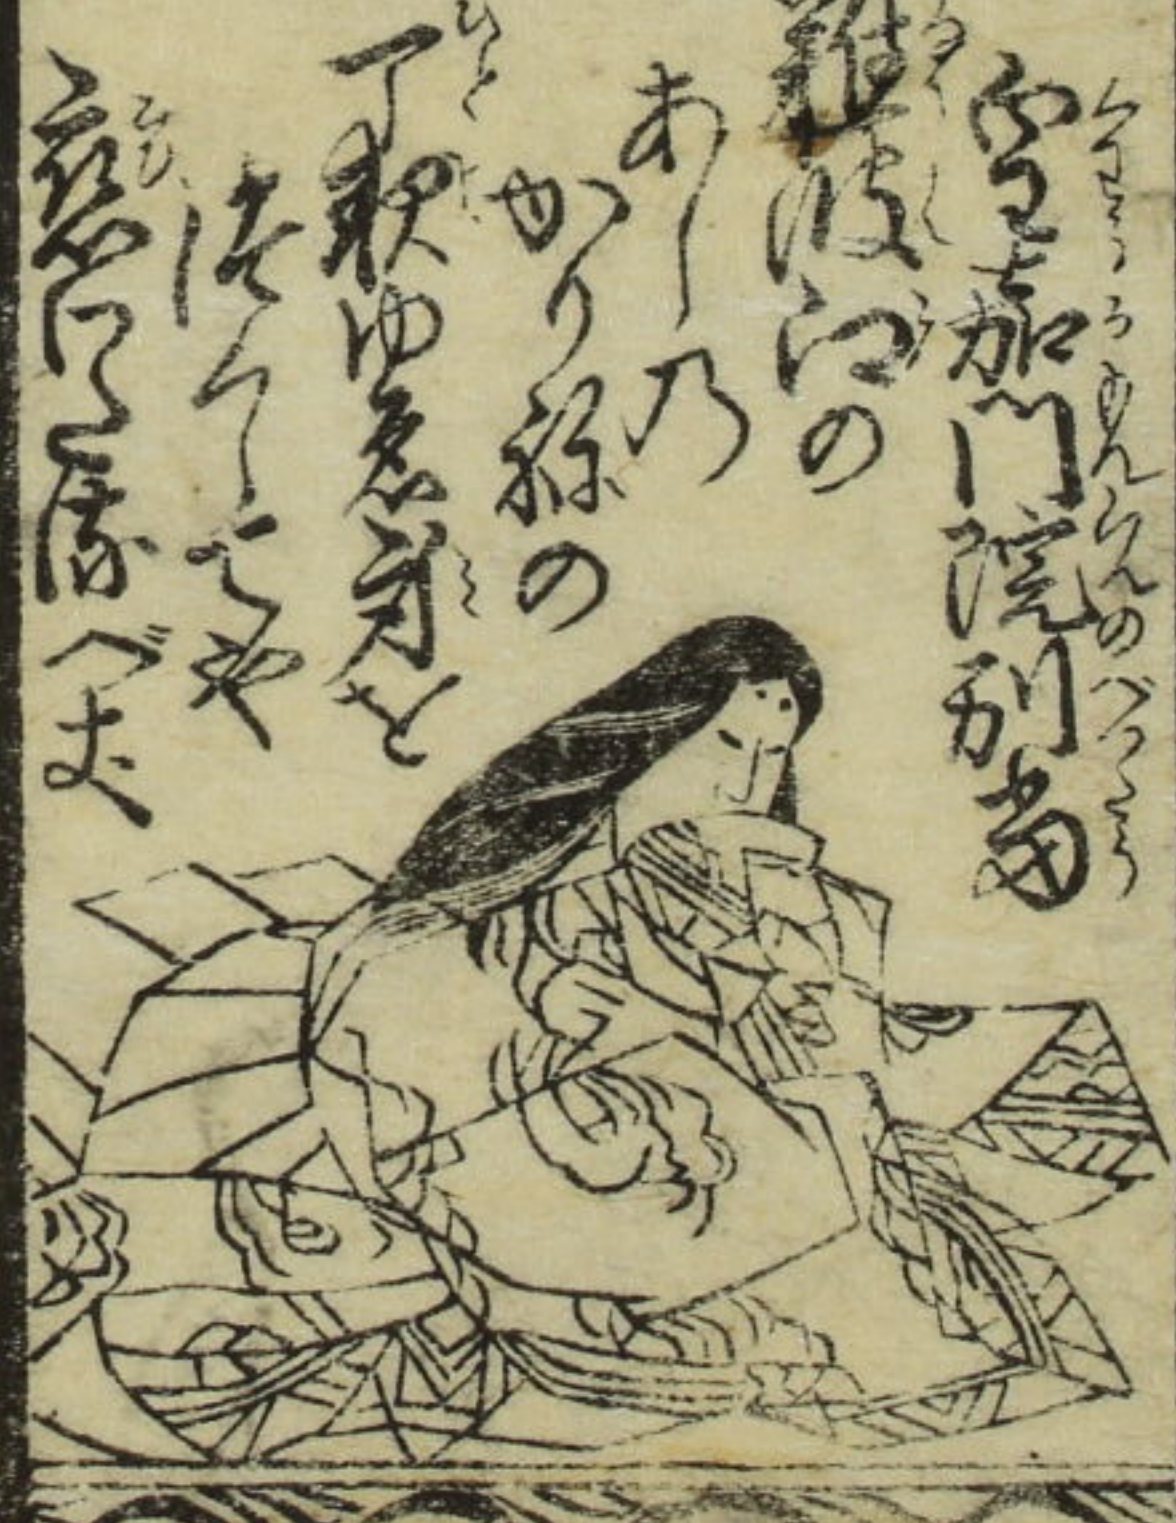 くわうかもんゐんのべつたう
皇嘉門院別當
なには え
難波江の
あしの
かりねの
ひとよ み
一夜ゆゑ身を
つくしてや
こひ
戀わたるべき